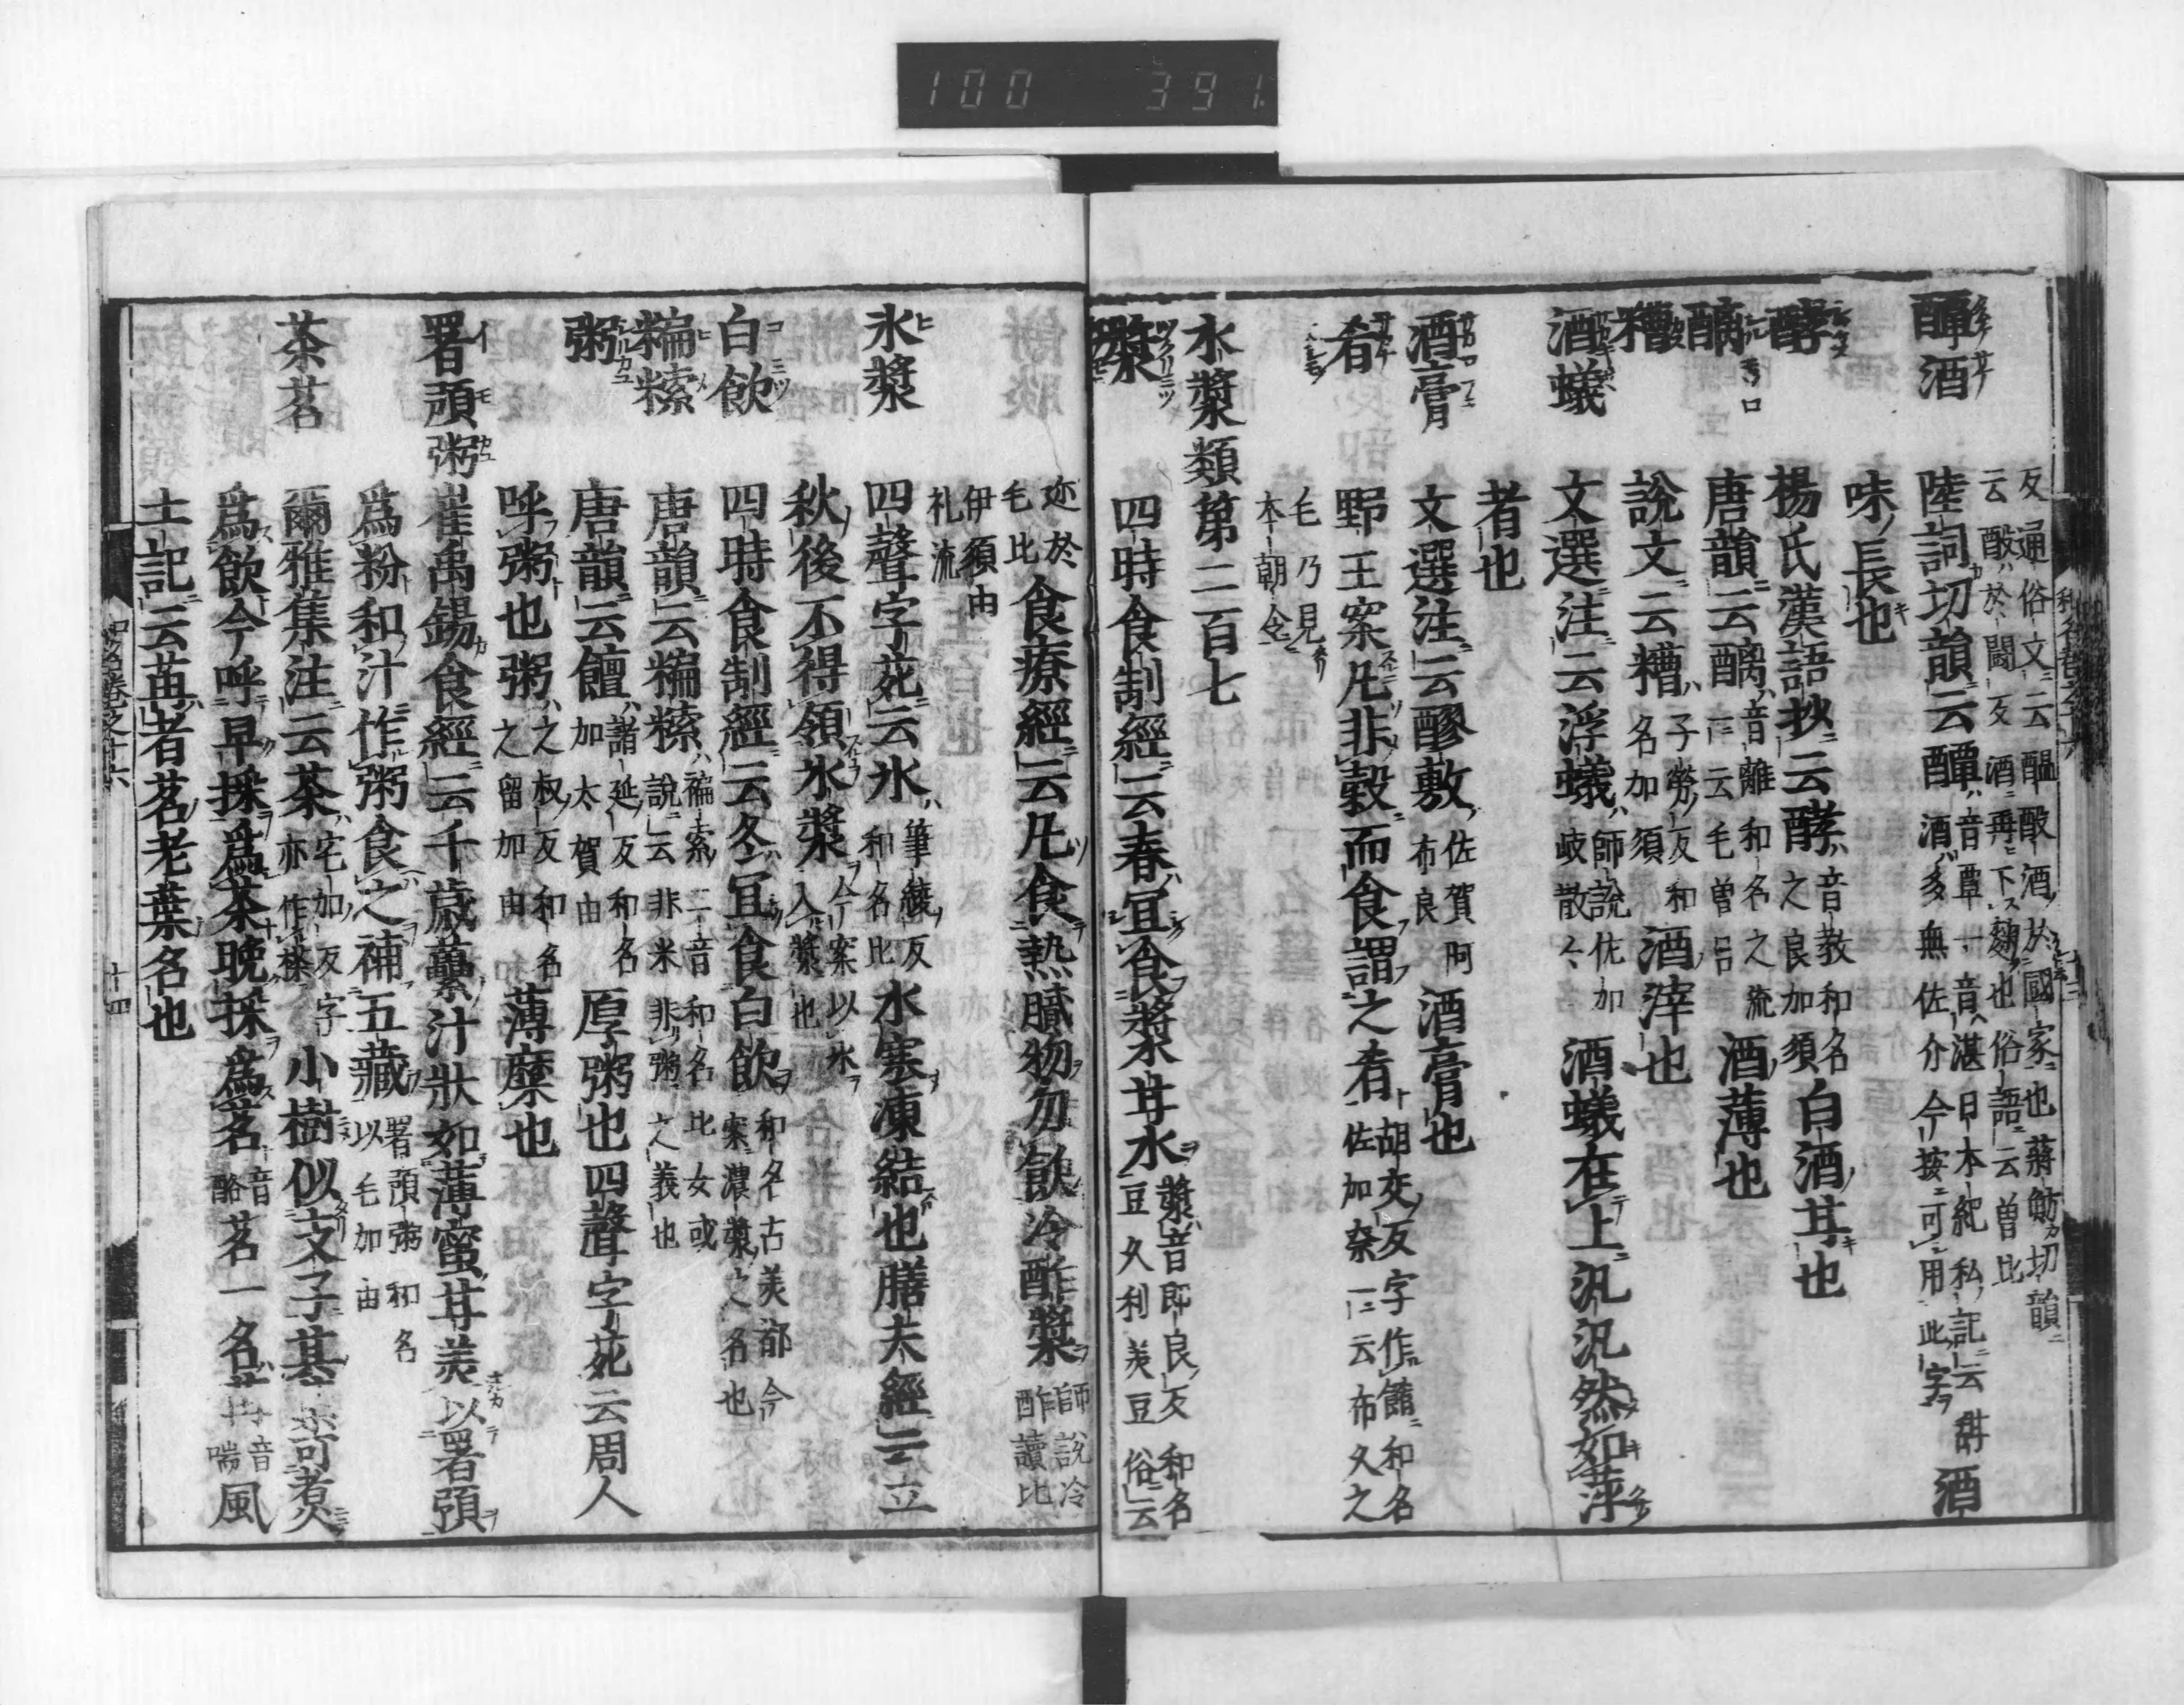 100 391.
反通俗文云醖酘酒於國家也蔣魴切韻
云酘於鬪反酒再下麹也俗語云曽比
醰酒
陸詞切韻云醰音覃一音湛日本紀私記云甜酒
酒多無佐介今按可用此字
味長也
酵
楊氏漢語抄云酵音教和名
之良加須
白酒甘也
醨
唐韻云醨音離和名之流
一云毛曽呂
酒薄也
糟
說文云糟子勞反和
名加須
酒滓也
酒蟻
文選注云浮蟻師說佐加
岐散々
酒蟻在上汎汎然如萍
者也
酒膏
文選注云醪敷佐賀阿
布良
酒膏也
肴
野王案凡非穀而食謂之肴胡交反字作餚和名
佐加奈一云布久之
毛乃見
本朝令
水漿類第二百七
漿
四時食制經云春宜食漿甘水漿音即良反和名
豆久利美豆俗云
迩於
毛比
食療經云凡食熱膩物勿飲冷酢漿師說冷
酢讀比
伊須由
礼流
氷漿
四聲字苑云氷筆綾反
和名比
水寒凍結也膳夫經云立
秋後不得領氷漿今案以氷
入漿也
白飲
四時食制經云冬宜食白飲和名古美都今
案濃漿之名也
糄䊶
唐韻云糄䊶褊索二音和名比女或
說云非米非粥之義也
粥
唐韻云饘諸延反和名
加太賀由
厚粥也四聲字苑云周人
呼粥也粥之叔反和名
之留加由
薄糜也
署預粥
崔禹錫食經云千歳虆汁狀如薄蜜甘美以署預
為粉和汁作粥食之補五藏署預粥和名
以毛加由
茶茗
爾雅集注云茶宅加反字
亦作𣗪
小樹似支子其葉可煮
為飲今呼早採為茶晚採為茗音
酩
茗一名荈音
喘
風
土記云苒者茗老葉名也
和名巻之十六
十四